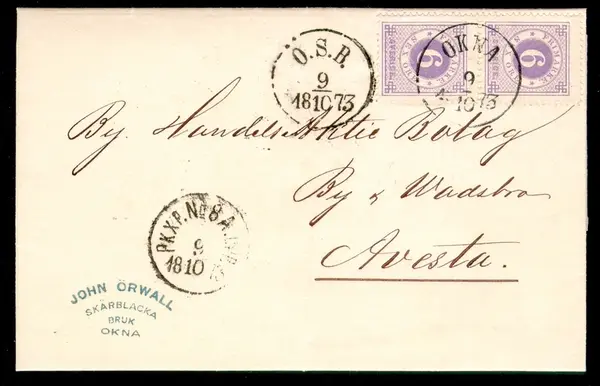 O.S.B.
9
18 10 73
OKNA
9
10
SEX ÖRE
6
6
By. Handels Aktie Bolag
By & Wadsbro
Avesta.
PKXP. No 8 A.
9
18 10
JOHN ÖRWALL
SKÄRBLACKA
BRUK
OKNA